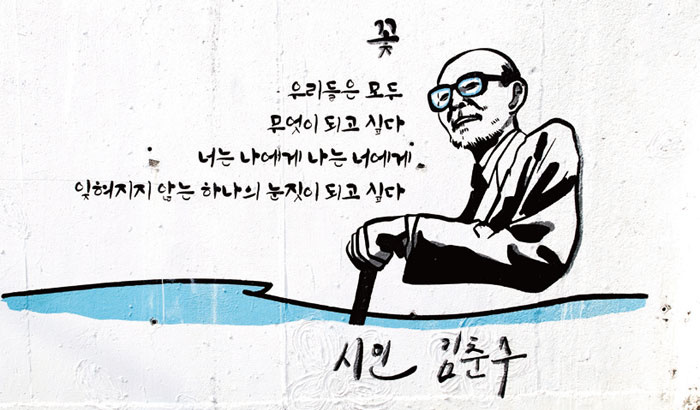 꽃
우리들은 모두
무엇이 되고 싶다
너는 나에게 나는 너에게
잊혀지지 않는 하나의 눈짓이 되고 싶다
시인 김춘수